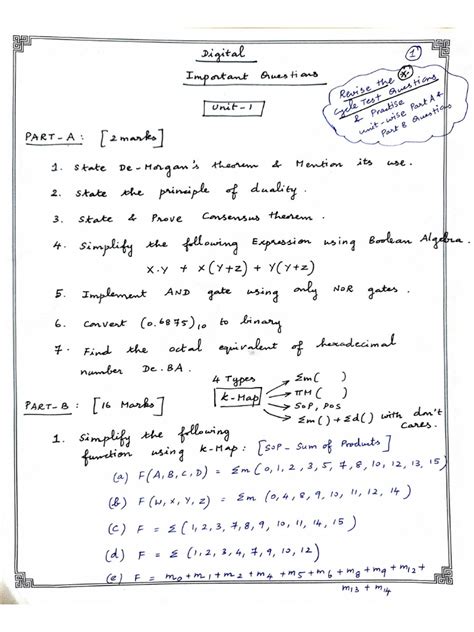 Digital
1
Important Questions
Unit-1
Revise the
Cycle Test Questions
& Practise
unit-wise Part A &
Part B Questions
PART-A : [2 marks]
1. State De-Morgan's theorem & Mention its use.
2. State the principle of duality.
3. State & Prove Consensus theorem.
4. Simplify the following Expression using Boolean Algebra.
X.Y + X(Y+Z) + Y(Y+Z)
5. Implement AND gate using only NOR gates.
6. Convert (0.6875)10 to binary
7. Find the octal equivalent of hexadecimal
number DC.BA
4 Types
K-Map
Σm( )
πM( )
SOP, POS
Σm() + Σd() with don't
cares.
PART-B : [16 Marks]
1. Simplify the following
function using K-Map: [SOP - Sum of Products]
(a) F(A,B,C,D) = Σm(0,1,2,3,5,7,8,10,12,13,15)
(b) F(W,X,Y,Z) = Σm(0,4,8,9,10,11,12,14)
(c) F = Σ(1,2,3,7,8,9,10,11,14,15)
(d) F = Σ(1,2,3,4,7,9,10,12)
(e) F = m0+m1+m2+m4+m5+m6+m8+m9+m12+
m13+m14